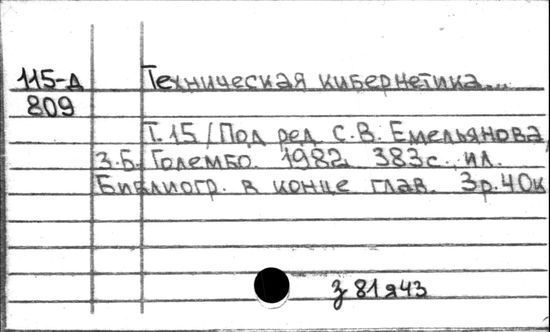 115-д Техническая кибернетика...
809
Т.15/Под ред С.В. Емельянова,
З.Б. Голембо. 1982. 383с., ил.
Библиогр. в конце глав. 3р.40к
з 81 я43